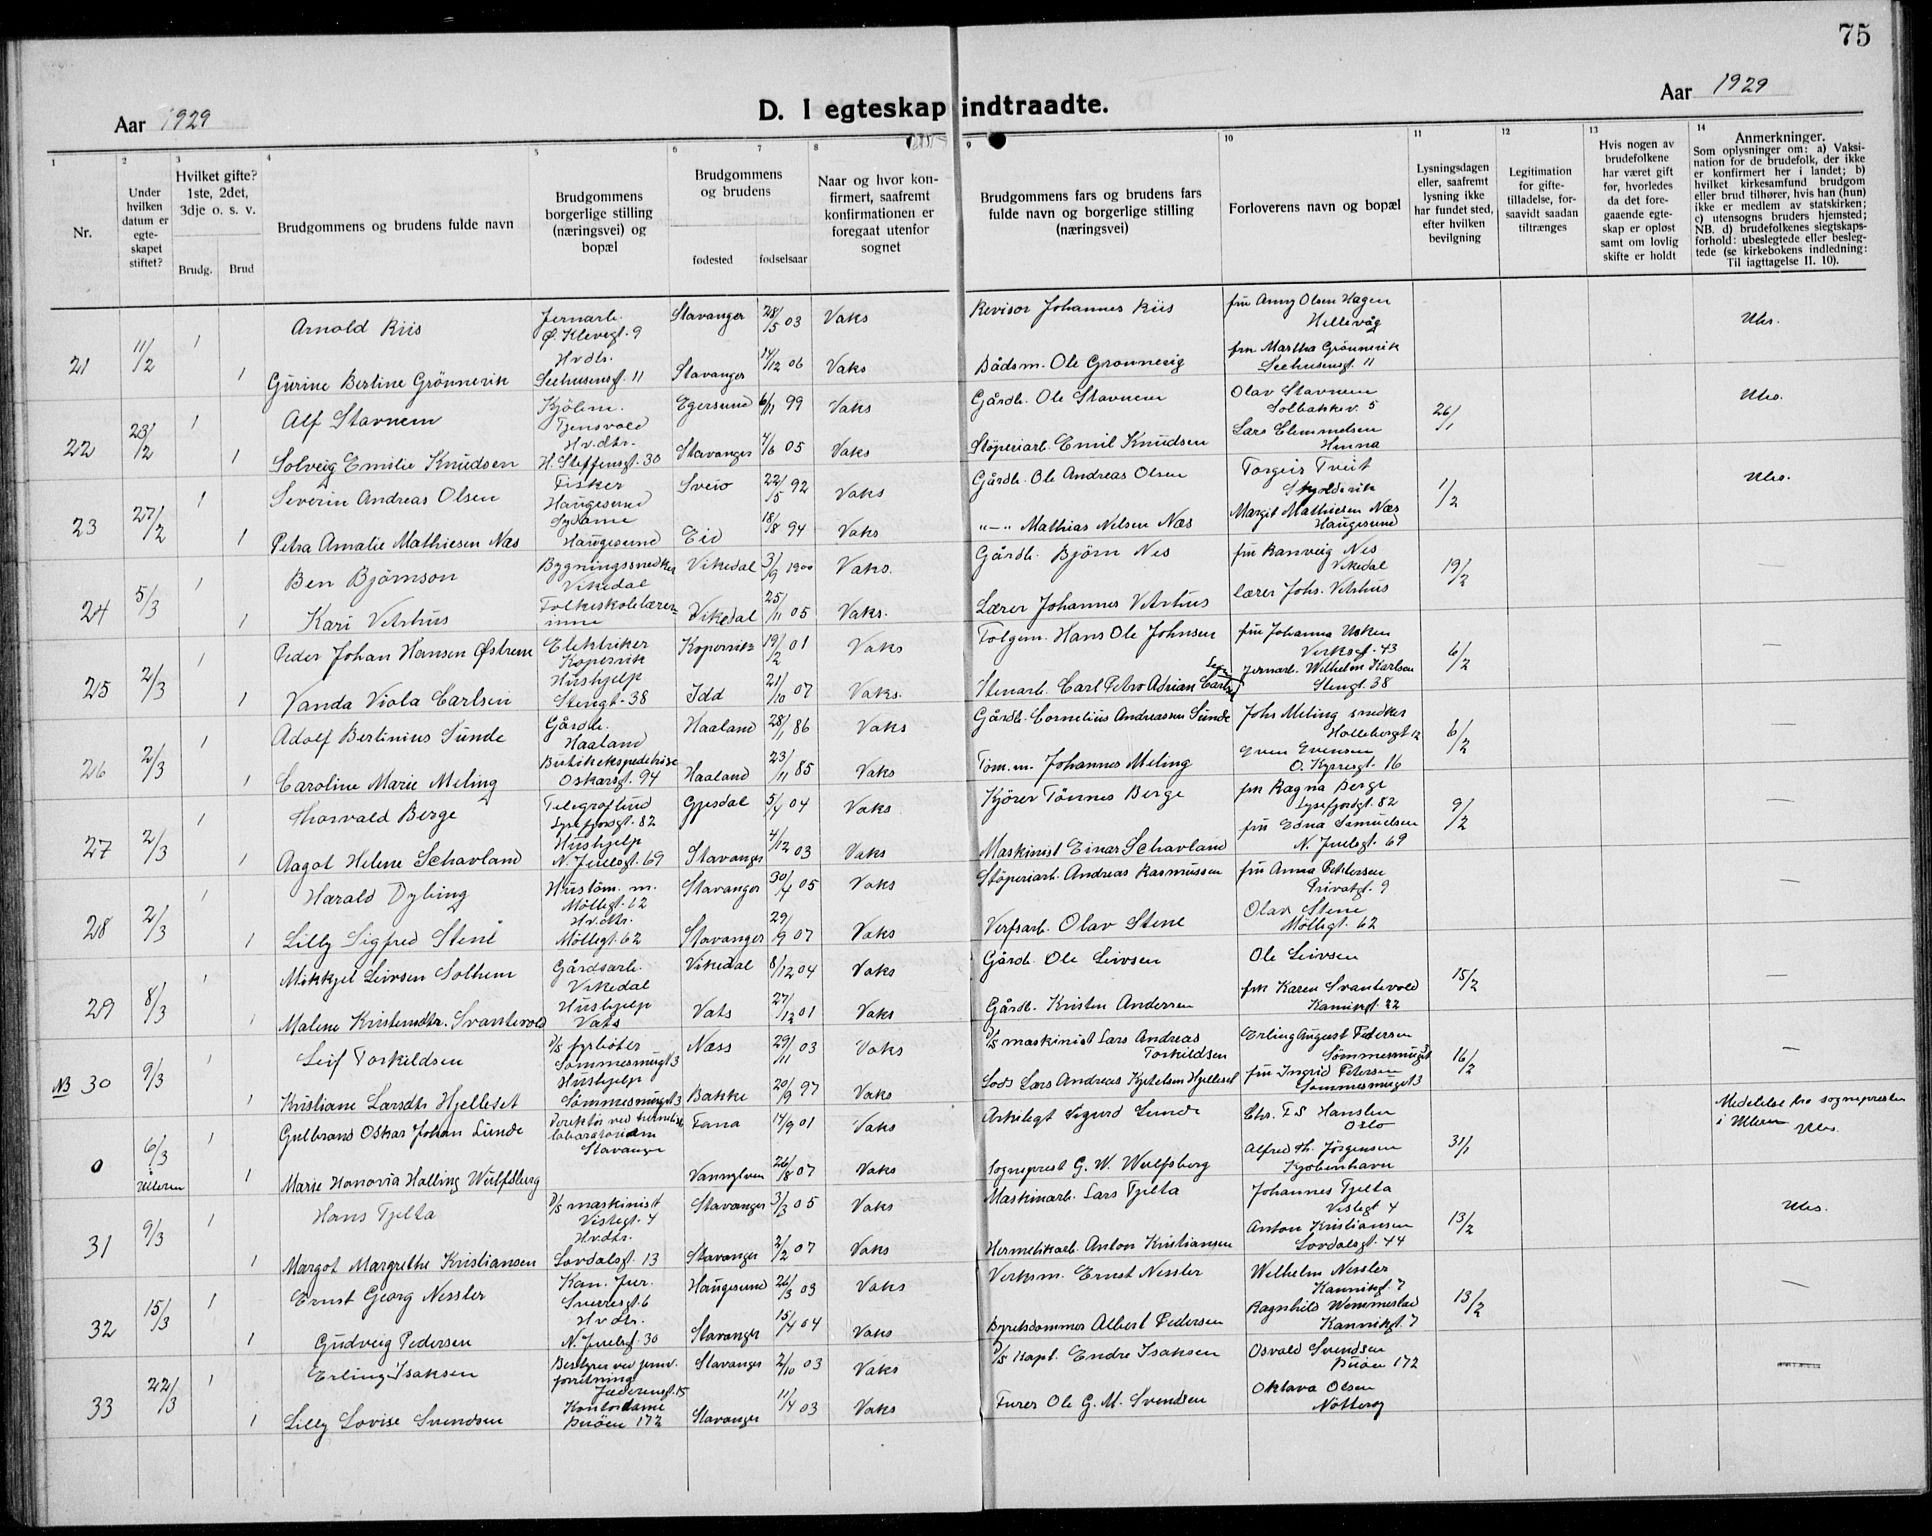 75
Aar 1929
D. I egteskap indtraadte.
Aar 1929
1 2 3 4 5 6 7 8 9 10 11 12 13 14
Nr.
Under hvilken datum er egteskapet stiftet?
Hvilket gifte? 1ste, 2det, 3dje o. s. v.
Brudg.
Brud
Brudgommens og brudens fulde navn
Brudgommens borgerlige stilling (næringsvei) og bopæl
Brudgommens og brudens
fødested
fødselsaar
Naar og hvor konfirmert, saafremt konfirmationen er foregaat utenfor sognet
Brudgommens fars og brudens fars fulde navn og borgerlige stilling (næringsvei)
Forloverens navn og bopæl
Lysningsdagen eller, saafremt lysning ikke har fundet sted, efter hvilken bevilgning
Legitimation for giftetilladelse, forsaavidt saadan tiltrænges
Hvis nogen av brudefolkene har været gift før, hvorledes da det foregaaende egteskap er opløst samt om lovlig skifte er holdt
Anmerkninger.
Som oplysninger om: a) Vaksination for de brudefolk, der ikke er konfirmert her i landet; b) hvilket kirkesamfund brudgom eller brud tilhører, hvis han (hun) ikke er medlem av statskirken; c) utensogns bruders hjemsted; NB. d) brudefolkenes slegtskapsforhold: ubeslegtede eller beslegtede (se kirkebokens indledning: Til iagttagelse II. 10).
21 11/2 1 Arnold Riis Jernarb. Ø. Klevegt. 9 Stavanger 28/5 03 Vaks Revisor Johannes Riis fru Anny Olsen Hagen Hillevåg Ubs.
1 Gurine Bertine Grönnevik Hvdtr. Seehusensgt. 11 Stavanger 14/12 06 Vaks Bådsm. Ole Gronnevig frn Martha Grönnevik Seehusensgt. 11
22 23/2 1 Alf Stavnem Tjensvold Egersund 6/11 99 Vaks Gårdb. Ole Stavnem Olav Stavnem Solbakkev. 5 26/1 Ubs.
1 Solveig Emilie Knudsen Hvdtr. H. Steffensgt. 30 Stavanger 4/6 05 Vaks Stöperiarb. Emil Knudsen Lars Clemmetsen Hinna
23 27/2 1 Severin Andreas Olsen Fisker Haugesund Sveio 22/5 92 Vaks Gårdb. Ole Andreas Olsen Torgeir Tveit 1/2 Ubs.
1 Petra Amalie Mathiesen Næs Sydame Haugesund Eid 18/8 94 Vaks "—" Mathias Nilsen Næs Margit Mathiesen Næs Haugesund
24 5/3 1 Ben Björnson Bygningssnedker Vikedal Vikedal 3/9 1900 Vaks. Gårdb. Bjørn Nes fru Ranveig Nes Vikedal 19/2 —
1 Kari Vetrhus Folkeskolelærerinne Vikedal 25/11 05 Vaks. Lærer Johannes Vetrhus Lærer Johs. Vetrhus
25 2/3 1 Peder Johan Hansen Østrem Elektriker Kopervik Kopervik 19/2 01 Vaks Folgem. Hans Ole Johnsen fru Johanna Usken Verksgt. 43 6/2 —
1 Vanda Viola Carlsen Hushjelp Stengt. 38 Idd 21/10 07 Vaks. Stenarb. Carl Petro Adrian Jernarb. Wilhelm Karlsen Stengt. 38
26 2/3 1 Adolf Bertinius Sunde Gårdb. Haaland Haaland 28/1 86 Vaks Gårdb. Cornelius Andreassen Sunde Johs Meling snedker 6/2 —
1 Caroline Marie Meling Butikekspeditrise Oskarsgt. 94 Haaland 23/11 85 Vaks Töm.m. Johannes Meling Even Evensen O. Kyrresgt. 16
27 2/3 1 Thorvald Berge Lysefjordgt. 82 Gjesdal 5/4 04 Vaks Kjörer Tönnes Berge frk Ragna Berge Lysefjordgt. 82 9/2 —
1 Aagot Helene Schavland Hushjelp N. Juelsgt. 69 Stavanger 4/12 03 Vaks Maskinist Einar Schavland fru Edna Samuelsen N. Juelsgt. 69
28 2/3 1 Harald Dybing Hustöm. m. Möllegt. 62 Stavanger 30/4 05 Vaks Stöperiarb. Andreas Rasmussen fru Anna Pettersen Privatgt. 9 —
1 Lilly Sigfred Stene Hvdtr. Möllegt. 62 Stavanger 29/9 07 Vaks Verfsarb. Olav Stene Olav Stene Möllegt. 62
29 8/3 1 Mikkjel Leivsen Solheim Gårdsarb. Vikedal Vikedal 8/12 04 Vaks Gårdb. Ole Leivsen Ole Leivsen 15/2 —
1 Malene Kristensdtr. Svantevold Hushjelp Vats Vats 27/12 01 Vaks Gårdb. Kristen Andersen frk Karen Svantevold Kannikgt. 22
NB 30 9/3 1 Leif Torkildsen D/S fyrböter Sömmesmugt 3 Næss 29/11 03 Vaks D/S maskinist Lars Andreas Torkildsen Erling August Pedersen Sömmesmugt 3 16/2 —
1 Kristiane Larsdtr Hjelleset Hushjelp Sömmesmuget 3 Bakke 20/9 97 Vaks Lods Lars Andreas Kjetelsen Hjelleset fru Ingrid Petersen Sömmesmuget 3
0 6/3 i Ulleren 1 Gulbrand Oskar Johan Lunde Direktör ved hermetikk laboratorium Stavanger Fana 14/9 01 Vaks Arkitekt Sigurd Lunde Chr. F. S. Hansen Oslo 31/1 Meddelelse fra sognepresten i Ulleren Ubs.
1 Marie Honoria Halling Wulfsberg Vannylven 26/8 07 Vaks Sogneprest G. W. Wulfsberg Alfred Th. Jørgensen Kjøbenhavn
31 9/3 1 Hans Tjelta D/S maskinist Vistegt. 4 Stavanger 3/3 05 Vaks Maskinarb. Lars Tjelta Johannes Tjelta Vistegt 4 13/2 Ubs.
1 Margot Margrethe Kristiansen Hvdtr. Lovdalsgt. 13 Stavanger 2/2 07 Vaks Hermetikarb. Anton Kristiansen Anton Kristiansen Lovdalsgt. 44
32 15/3 1 Ernst Georg Nessler Kan. Jur. Sverresgt. 6 Haugesund 26/3 03 Vaks Verksm. Ernst Nessler Wilhelm Nessler Kannikgt. 7 13/2 —
1 Gudveig Pedersen Hvdtr. N. Juelsgt. 30 Stavanger 15/4 04 Vaks Byretsdommer Albert Pedersen Ragnhild Wemmestad Kannikgt. 7
33 22/3 1 Erling Isaksen Bestyrer ved jernv. forretning Jæderensgt. 15 Stavanger 2/10 03 Vaks D/S Kapt. Endre Isaksen Osvald Svendsen Buöen 172 —
1 Lilly Lovise Svendsen Kontordame Buöen 172 Stavanger 11/4 03 Vaks Furer Ole G. M. Svendsen Oktava Olsen Nötteröy